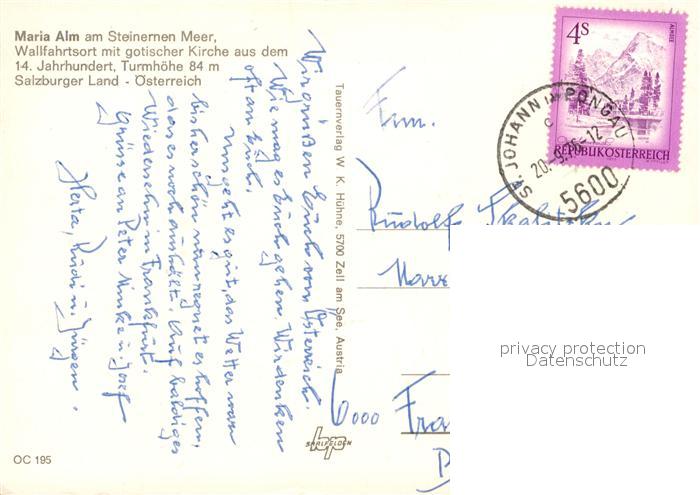 Maria Alm am Steinernen Meer,
Wallfahrtsort mit gotischer Kirche aus dem
14. Jahrhundert, Turmhöhe 84 m
Salzburger Land - Österreich
Wir grüßen Euch von Österreich.
Wie mag es Euch gehen. Wir denken
oft an Euch.
Uns geht es gut, das Wetter war
bisher schön nun regnet es hoffen,
das es noch anhält. Auf baldiges
Wiedersehn in Frankfurt.
Grüsse an Peter u. Josef
Herta, Rudi u. Jürgen.
Tauernverlag W. K. Hühne, 5700 Zell am See, Austria
Fam.
Rudolf
6000 Fra
SAALFELDEN
OC 195
4S
ALMSEE
REPUBLIK ÖSTERREICH
ST. JOHANN IM PONGAU
5600
privacy protection
Datenschutz